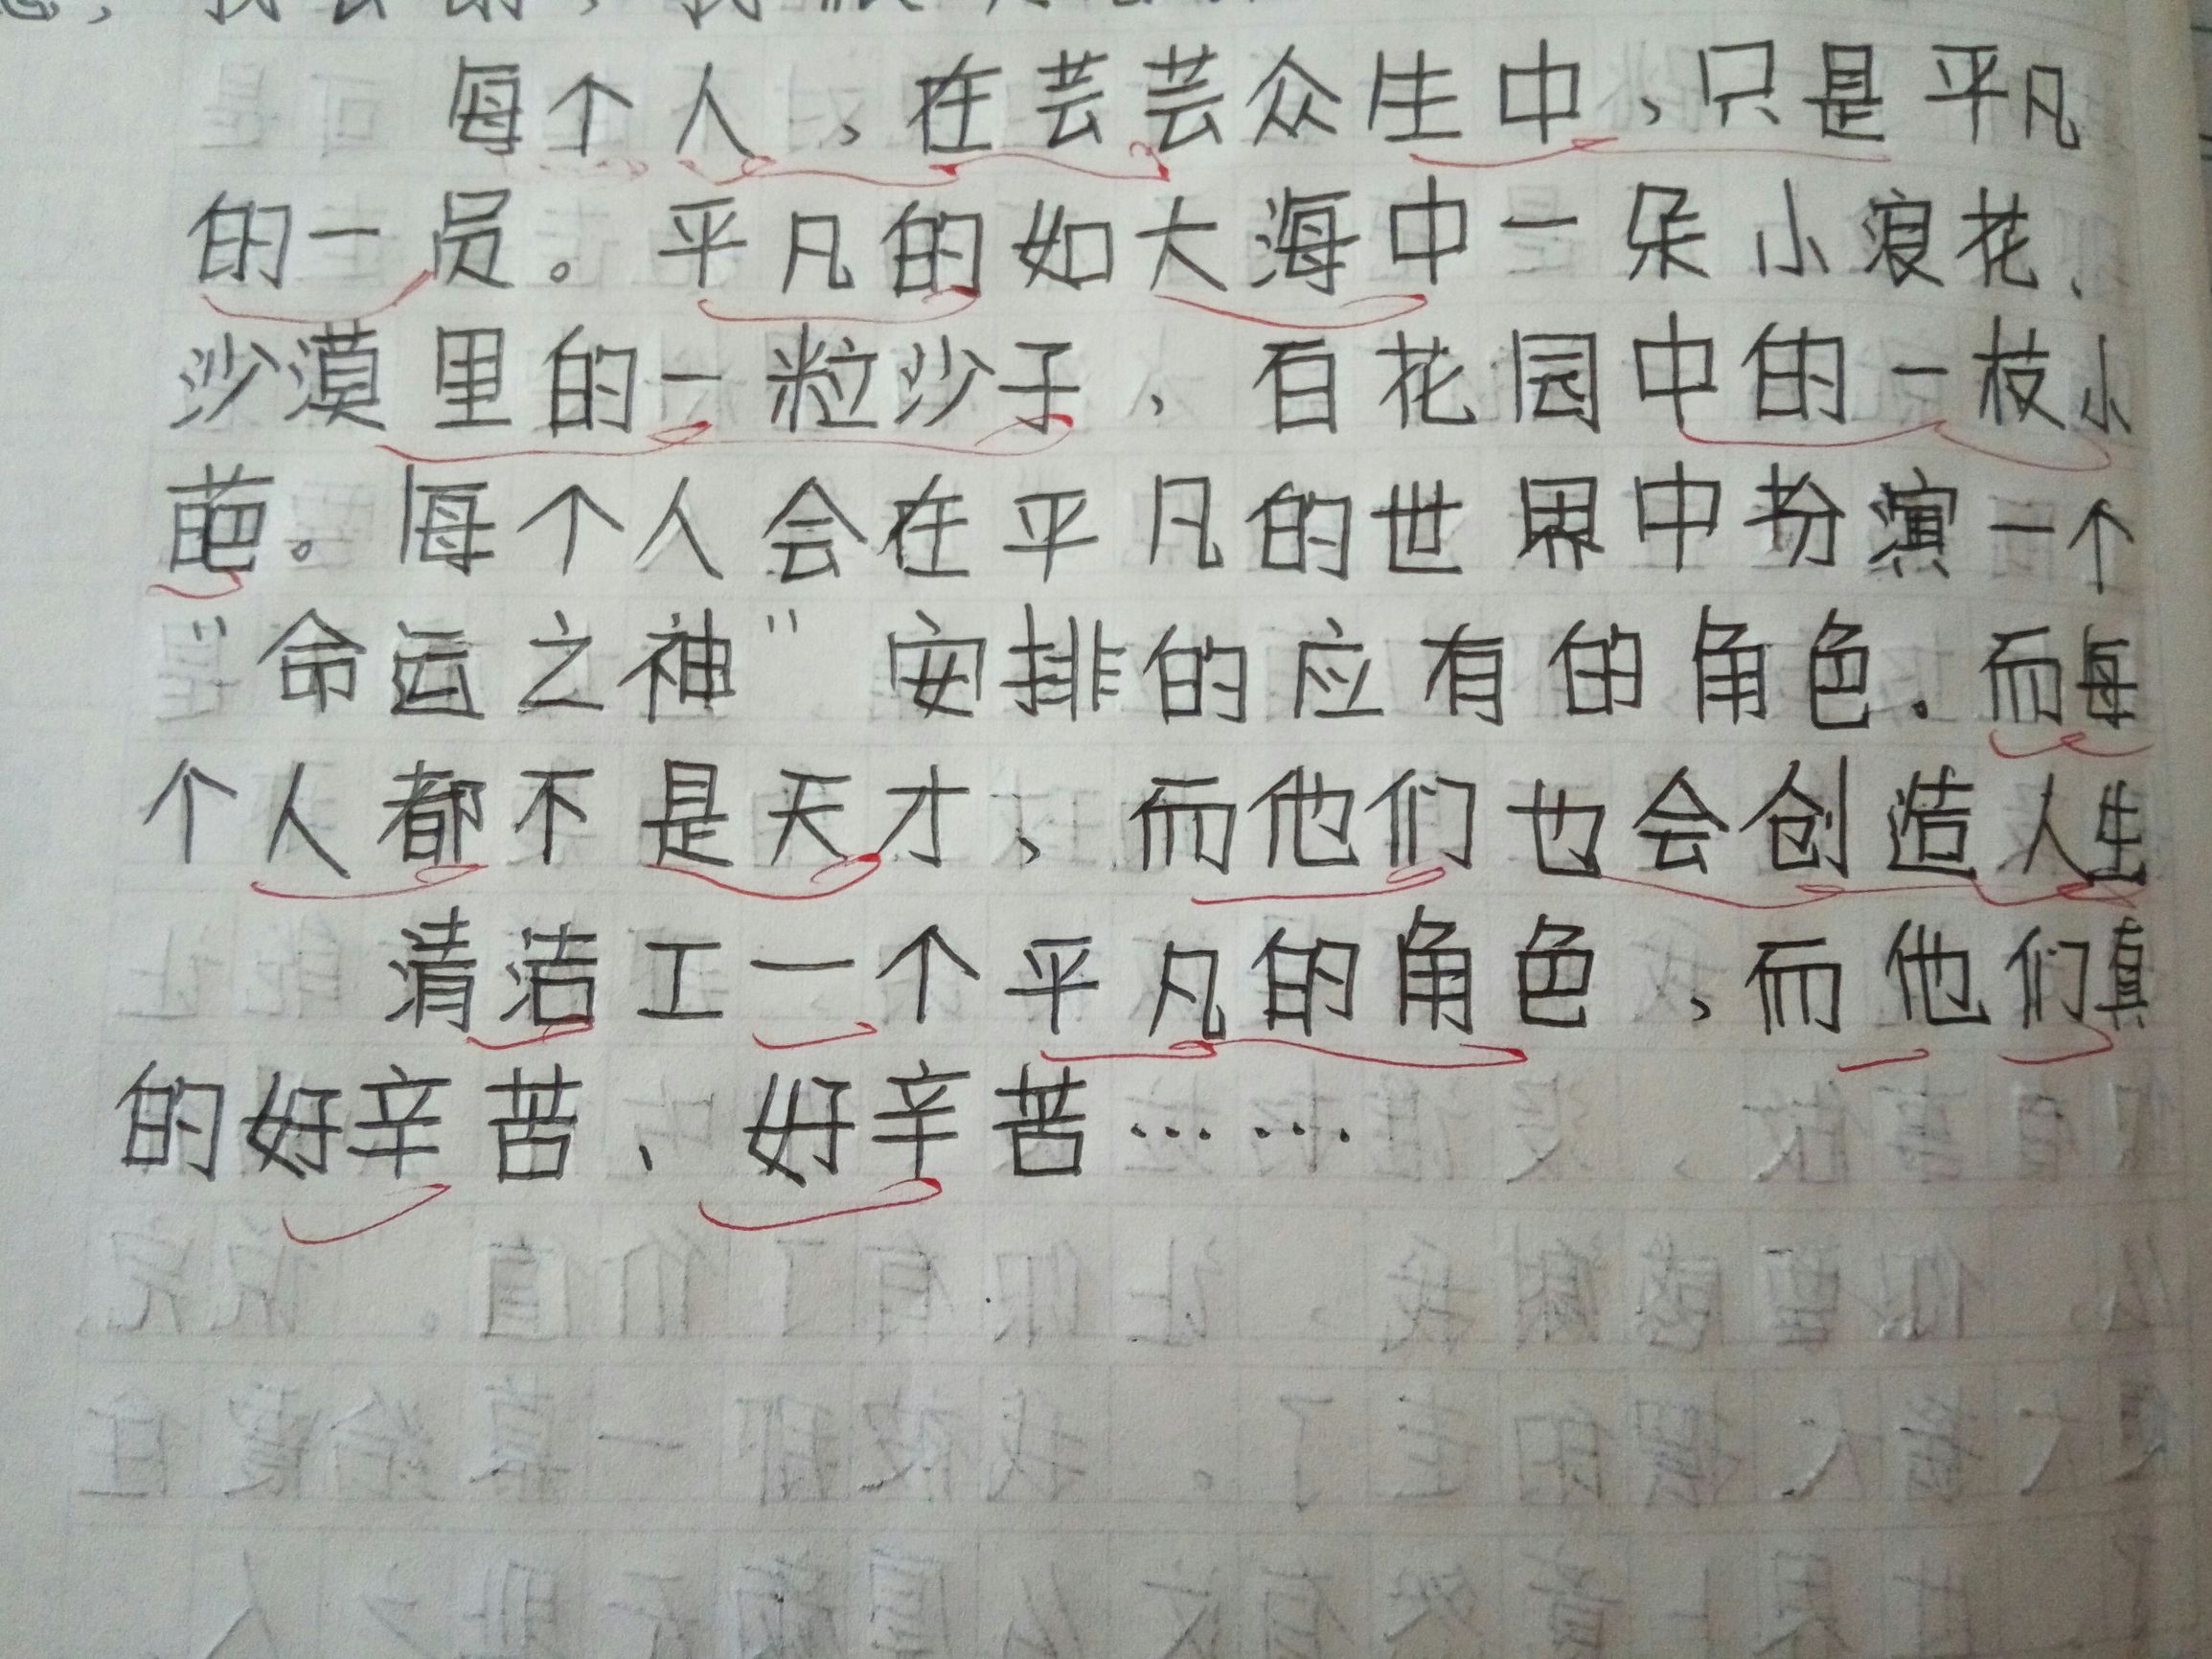 每个人，在芸芸众生中，只是平凡
的一员。平凡的如大海中一朵小浪花、
沙漠里的一粒沙子、百花园中的一枝小
葩。每个人会在平凡的世界中扮演一个
“命运之神”安排的应有的角色。而每
个人都不是天才、而他们也会创造人生
清洁工一个平凡的角色，而他们真
的好辛苦、好辛苦……